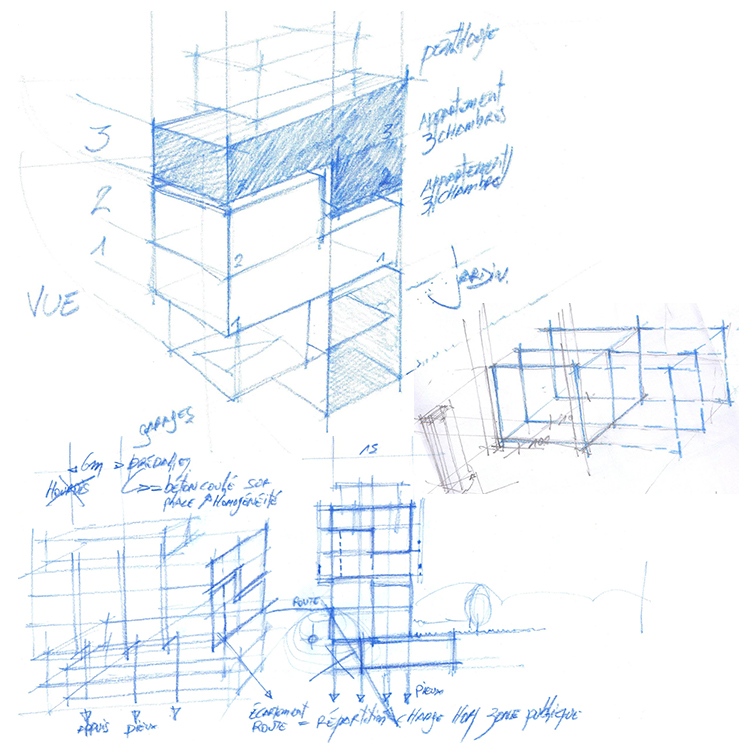 PENTHOUSE
APPARTEMENT
3 CHAMBRES
APPARTEMENT
3 CHAMBRES
3
2
1
3
3
2
2
1
1
VUE
JARDIN
GARAGES
6m => PRÉDALLES
HOURDIS
=> BÉTON COULÉ SUR
PLACE HOMOGÉNÉITÉ
15
100
ROUTE
PIEUX
APPUIS PIEUX
ÉCARTEMENT
ROUTE = RÉPARTITION CHARGE HORS ZONE PUBLIQUE